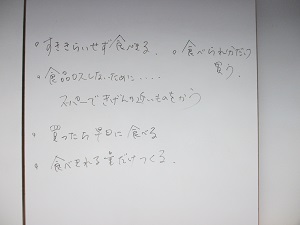 ・すききらいせず食べきる。
・食べられるだけ
買う。
・食品ロスしないために....
スーパーできげんの近いものをかう
・買ったら早目に食べる
・食べきれる量だけつくる。